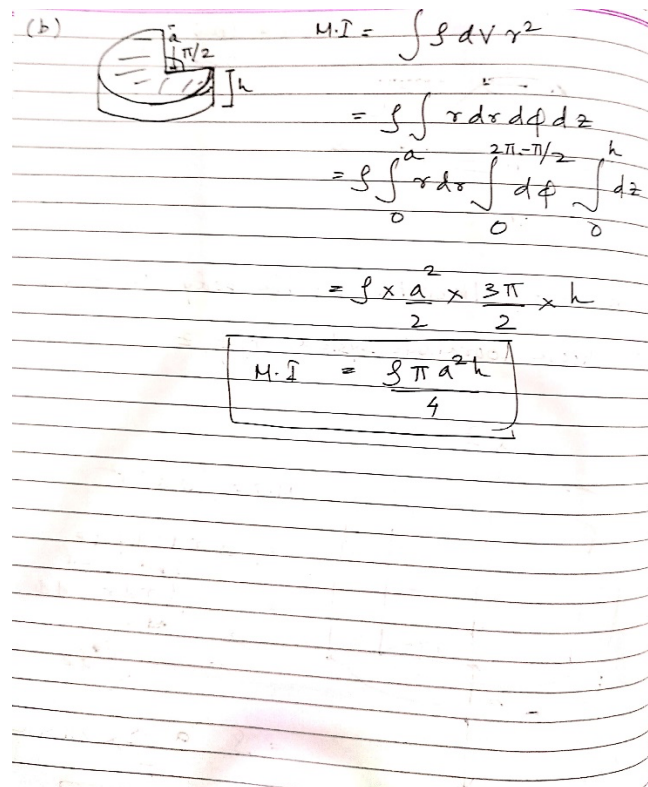 (b)
a
π/2
h
M.I = ∫ ρ dV r²
= ρ ∫ r dr dφ dz
= ρ ∫₀ᵃ r dr ∫₀^{2π-π/2} dφ ∫₀ʰ dz
= ρ × a²/2 × 3π/2 × h
M.I = ρπa²h/4